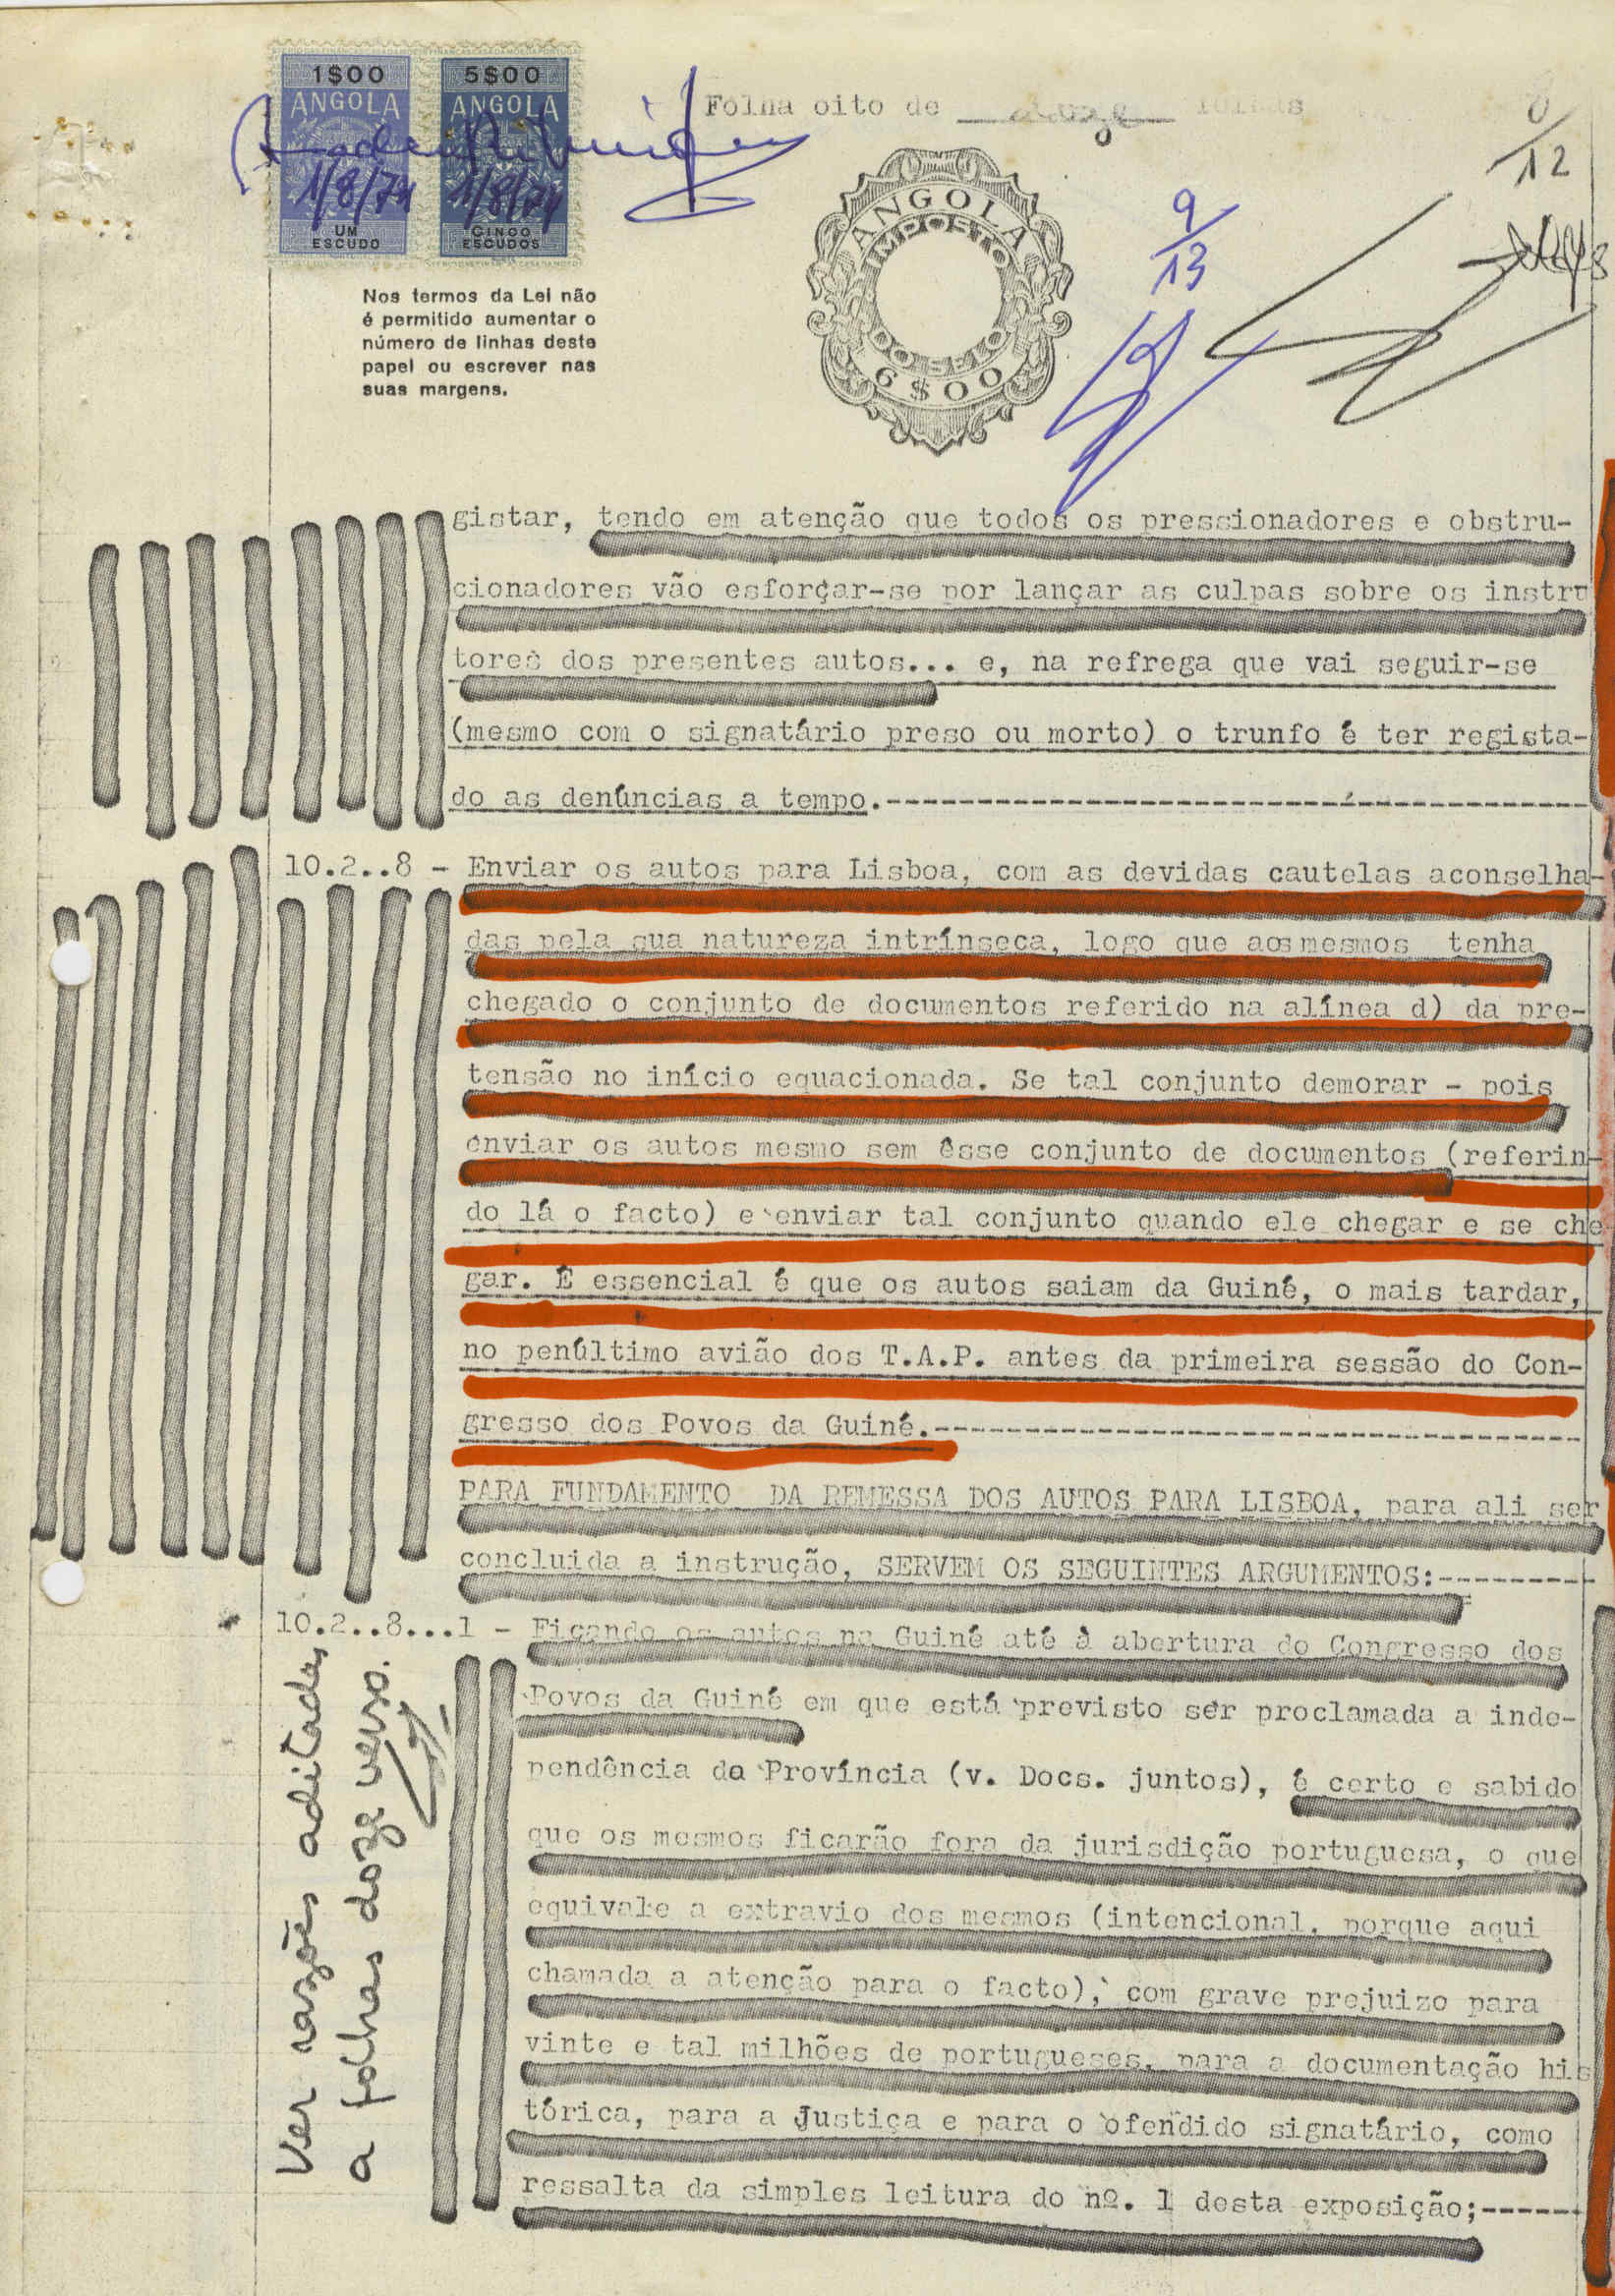 1$00
ANGOLA
1/8/74
UM
ESCUDO
5$00
ANGOLA
1/8/74
CINCO
ESCUDOS
Folha oito de doze folhas
8/12
9/13
ANGOLA
IMPOSTO
DO SELO
6$00
Nos termos da Lei não
é permitido aumentar o
número de linhas deste
papel ou escrever nas
suas margens.
gistar, tendo em atenção que todos os pressionadores e obstru-
cionadores vão esforçar-se por lançar as culpas sobre os instru
tores dos presentes autos... e, na refrega que vai seguir-se
(mesmo com o signatário preso ou morto) o trunfo é ter regista-
do as denúncias a tempo.----------------------------------------
10.2..8 - Enviar os autos para Lisboa, com as devidas cautelas aconselha-
das pela sua natureza intrínseca, logo que aos mesmos tenha
chegado o conjunto de documentos referido na alínea d) da pre-
tensão no início equacionada. Se tal conjunto demorar - pois
enviar os autos mesmo sem êsse conjunto de documentos (referin-
do lá o facto) e enviar tal conjunto quando ele chegar e se che
gar. É essencial é que os autos saiam da Guiné, o mais tardar,
no penúltimo avião dos T.A.P. antes da primeira sessão do Con-
gresso dos Povos da Guiné.-------------------------------------
PARA FUNDAMENTO DA REMESSA DOS AUTOS PARA LISBOA, para ali ser
concluida a instrução, SERVEM OS SEGUINTES ARGUMENTOS:---------
10.2..8...1 - Ficando os autos na Guiné até à abertura do Congresso dos
Povos da Guiné em que está previsto ser proclamada a inde-
pendência da Província (v. Docs. juntos), é certo e sabido
que os mesmos ficarão fora da jurisdição portuguesa, o que
equivale a extravio dos mesmos (intencional, porque aqui
chamada a atenção para o facto), com grave prejuizo para
vinte e tal milhões de portugueses, para a documentação his
tórica, para a Justiça e para o ofendido signatário, como
ressalta da simples leitura do nº. 1 desta exposição;------
Ver razões aditadas
a folhas doze verso.